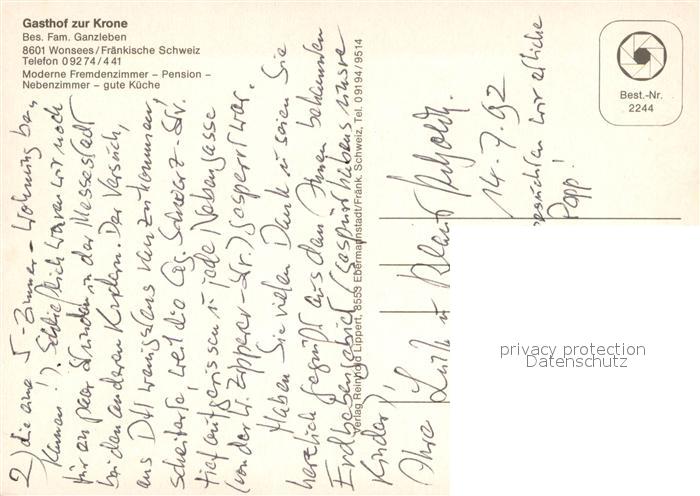 Gasthof zur Krone
Bes. Fam. Ganzleben
8601 Wonsees/Fränkische Schweiz
Telefon 0 92 74 / 4 41
Moderne Fremdenzimmer – Pension –
Nebenzimmer – gute Küche
Best.-Nr.
2244
Verlag Reinhold Lippert, 8553 Ebermannstadt/Fränk. Schweiz, Tel. 0 91 94 / 95 14
2) die eine 5-Zimmer-Wohnung be-
kamen!). Schließlich waren wir noch
für ein paar Stunden in der Messestadt
bei den anderen Kindern. Der Versuch,
aus DH wenigstens
scheiterte, weil die Gg. Schwarz-Str.
tief aufgerissen u. jede Nebengasse
(von der W. Zipperer-Str.) gesperrt war.
Haben Sie vielen Dank u. seien Sie
herzlich gegrüßt aus dem Ihnen bekannten
Erdbebengebiet (gespürt haben's unsre
Kinder)
Ihre u. Klaus
14.7.92
besuchten wir etliche
Pepp!
privacy protection
Datenschutz